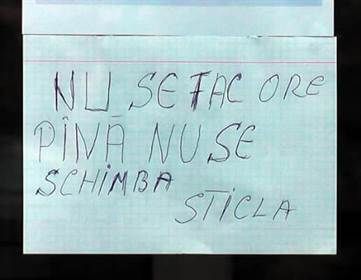 NU SE FAC ORE
PÎNĂ NU SE
SCHIMBA
STICLA